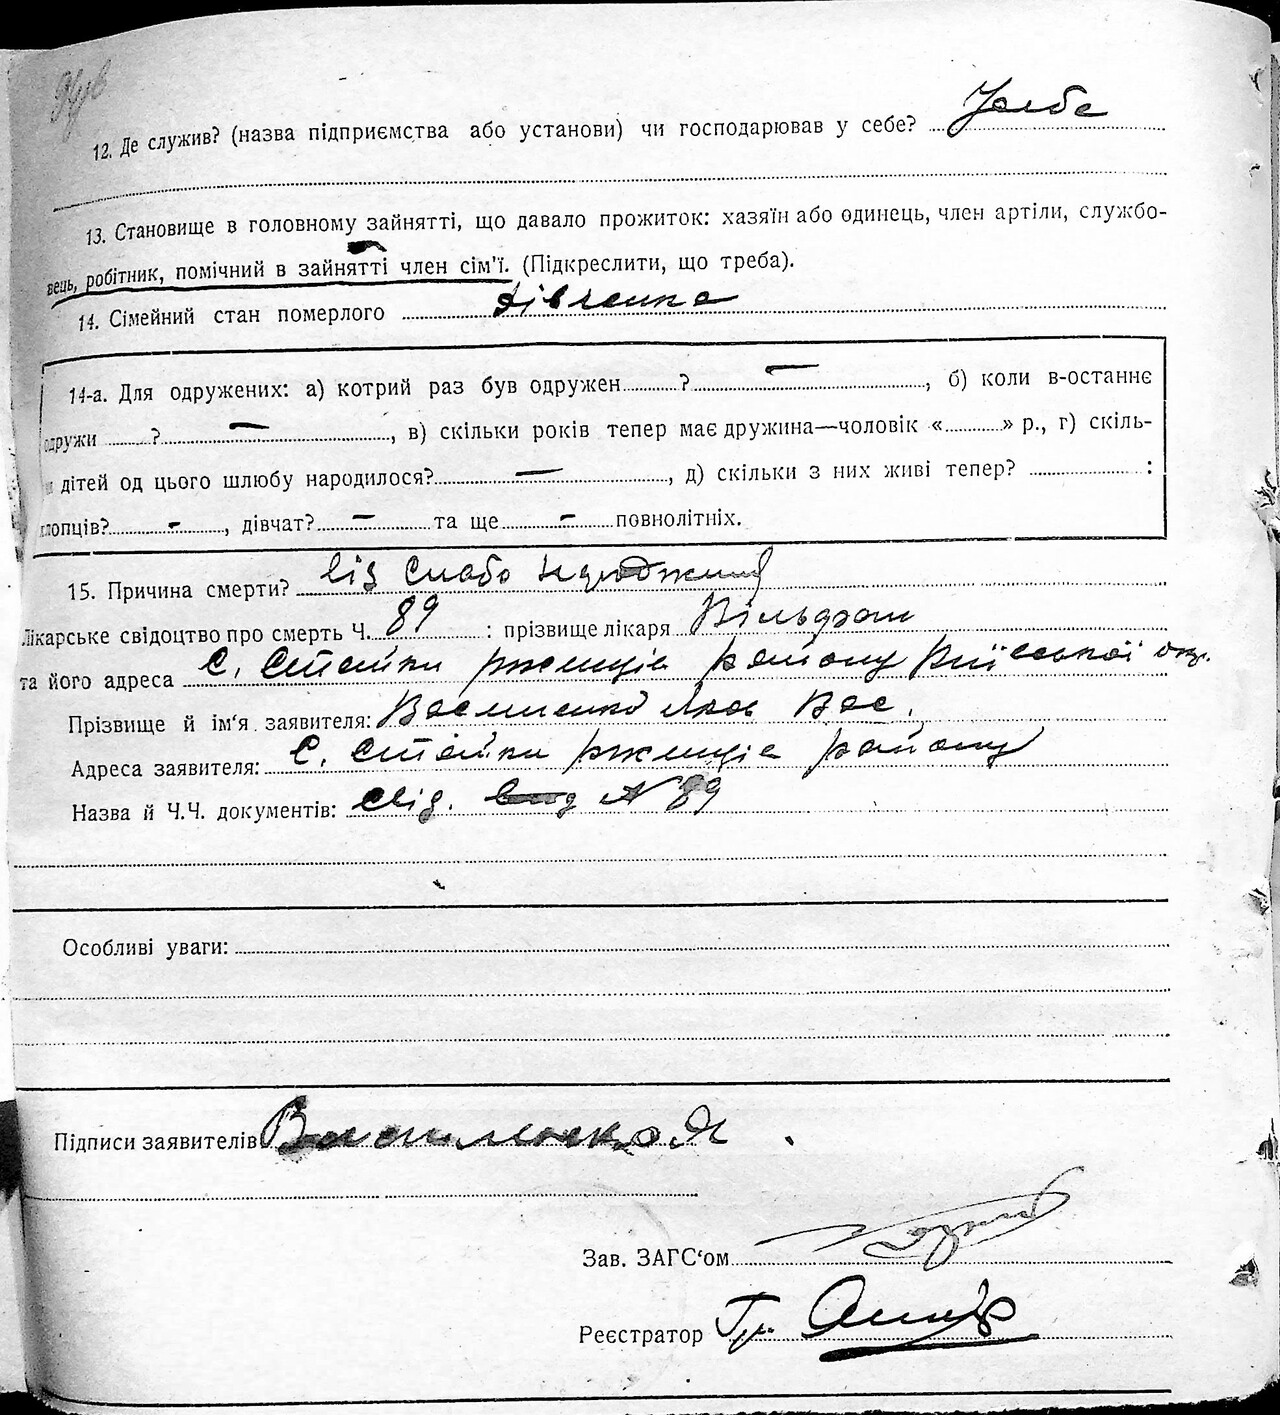 12. Де служив? (назва підприємства або установи) чи господарював у себе? У себе
13. Становище в головному зайнятті, що давало прожиток: хазяїн або одинець, член артіли, службо-
вець, робітник, помічний в зайнятті член сім'ї. (Підкреслити, що треба).
14. Сімейний стан померлого дівченка
14-а. Для одружених: а) котрий раз був одружен ? —, б) коли в-останнє
одружи ? —, в) скільки років тепер має дружина—чоловік « » р., г) скіль-
дітей од цього шлюбу народилося? —, д) скільки з них живі тепер? :
хлопців? -, дівчат? — та ще - повнолітніх.
15. Причина смерти? від слабо
Лікарське свідоцтво про смерть Ч. 89 : прізвище лікаря Вільфран
та його адреса С. Стайки Ржищів району Київської окр.
Прізвище й ім'я заявителя: Василенко Яков Вас.
Адреса заявителя: С. Стайки Ржищів району
Назва й Ч.Ч. документів: свід. № 89
Особливі уваги:
Підписи заявителів Василенко Я
Зав. ЗАГС'ом
Реєстратор Гр.